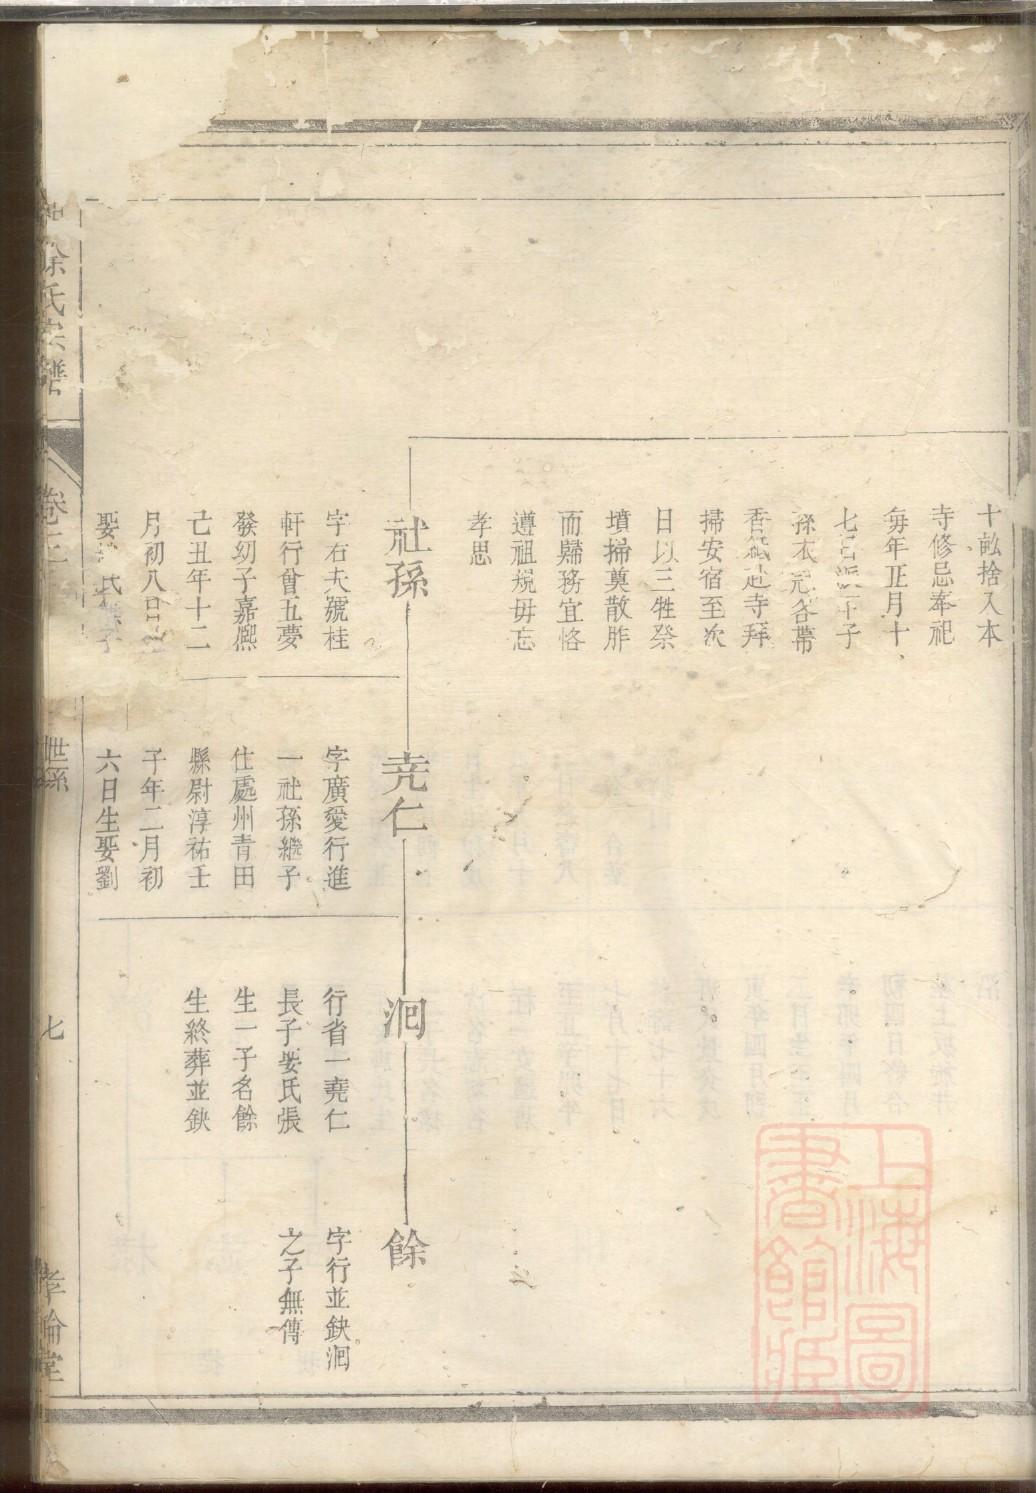 十畆捨入本
寺修忌奉祀
每年正月十
七日派下子
孫衣冠各帶
香紙赴寺拜
掃安宿至次
日以三牲祭
墳掃奠散胙
而歸務宜恪
遵祖規毋忘
孝思
社孫
字右夫號桂
軒行曾五夢
發幼子嘉熙
己丑年十二
月初八日
娶 氏 子
尭仁
字廣愛行進
一社孫繼子
仕處州青田
縣尉淳祐壬
子年二月初
六日生娶劉
泂
行省一堯仁
長子娶氏張
生一子名餘
生終葬並缺
餘
字行並缺泂
之子無傳
徐氏宗譜
卷
世系
七
孝倫堂
上海圖
書館藏